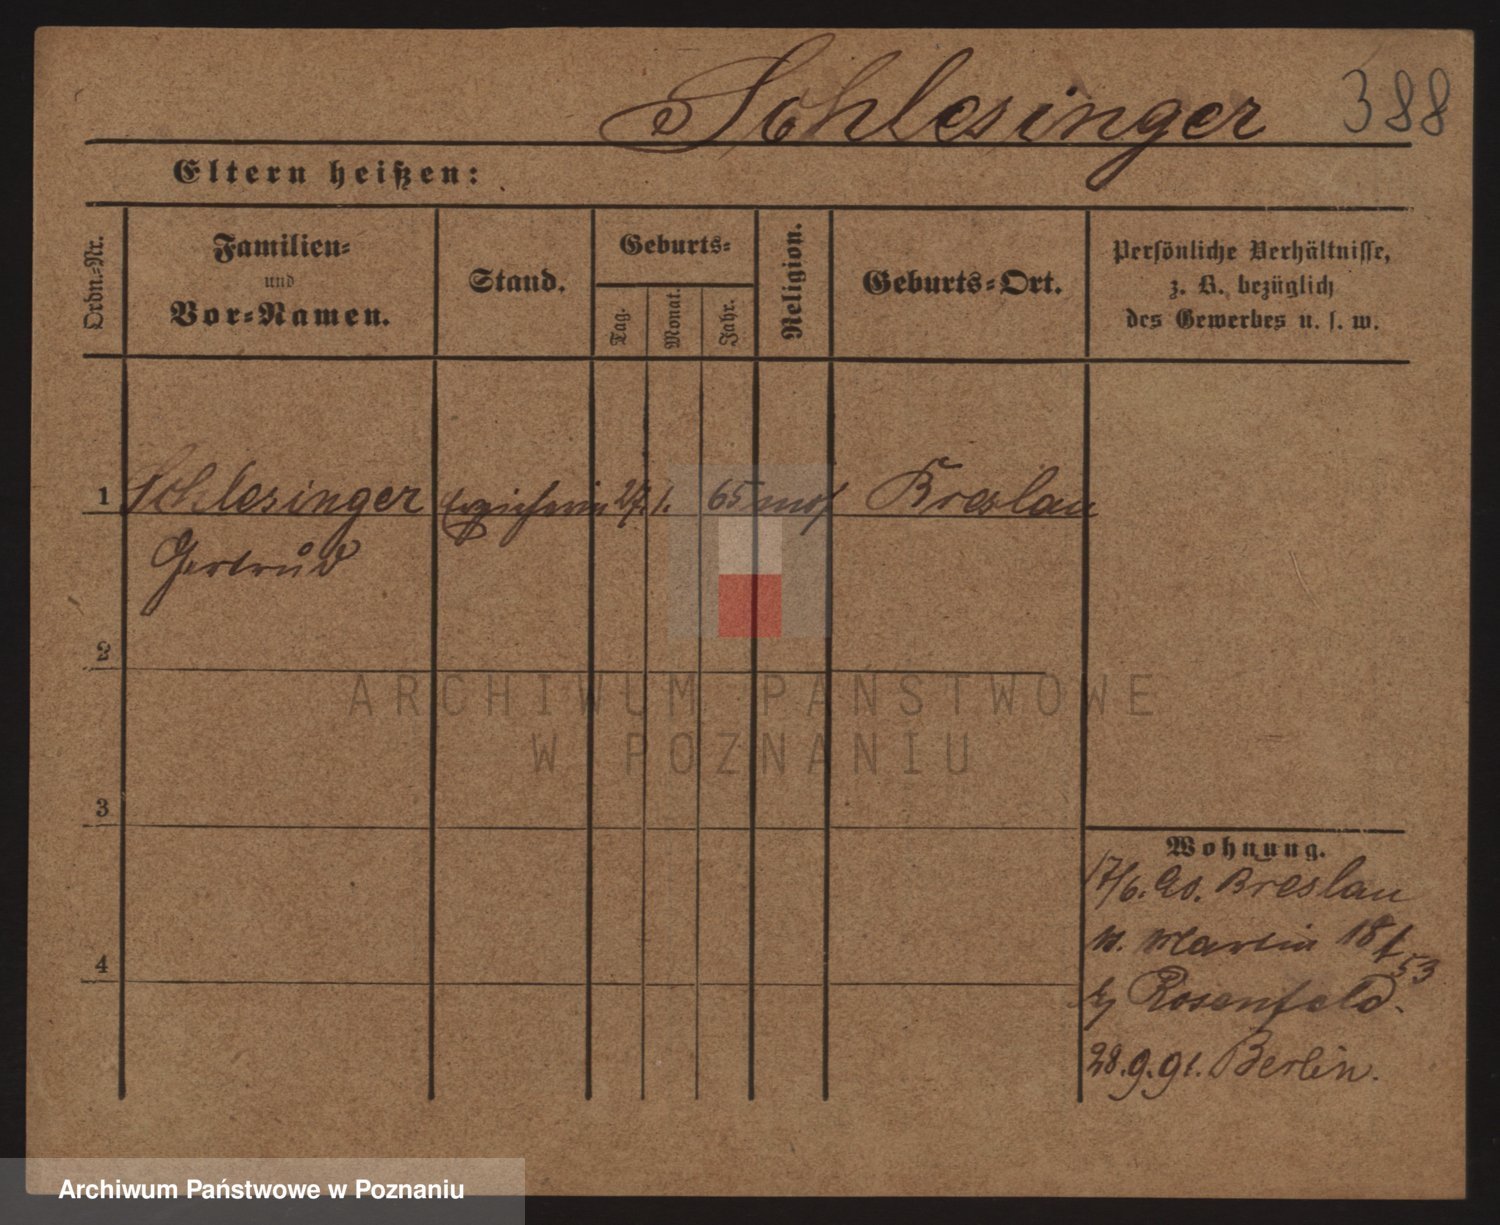 Schlesinger 388
Eltern heißen:
Ordn=Nr.
Familien=
und
Vor=Namen.
Stand.
Geburts=
Tag.
Monat.
Jahr.
Religion.
Geburts=Ort.
Persönliche Verhältnisse,
z. B. bezüglich
des Gewerbes u. s. w.
1 Schlesinger Erzieherin 27. 1. 65 mos Breslau
Gertrud
2
3
4
Wohnung.
17/6. 90. Breslau
St. Martin 18
53
b/ Rosenfeld.
28.9.91. Berlin.
ARCHIWUM PAŃSTWOWE
W POZNANIU
Archiwum Państwowe w Poznaniu